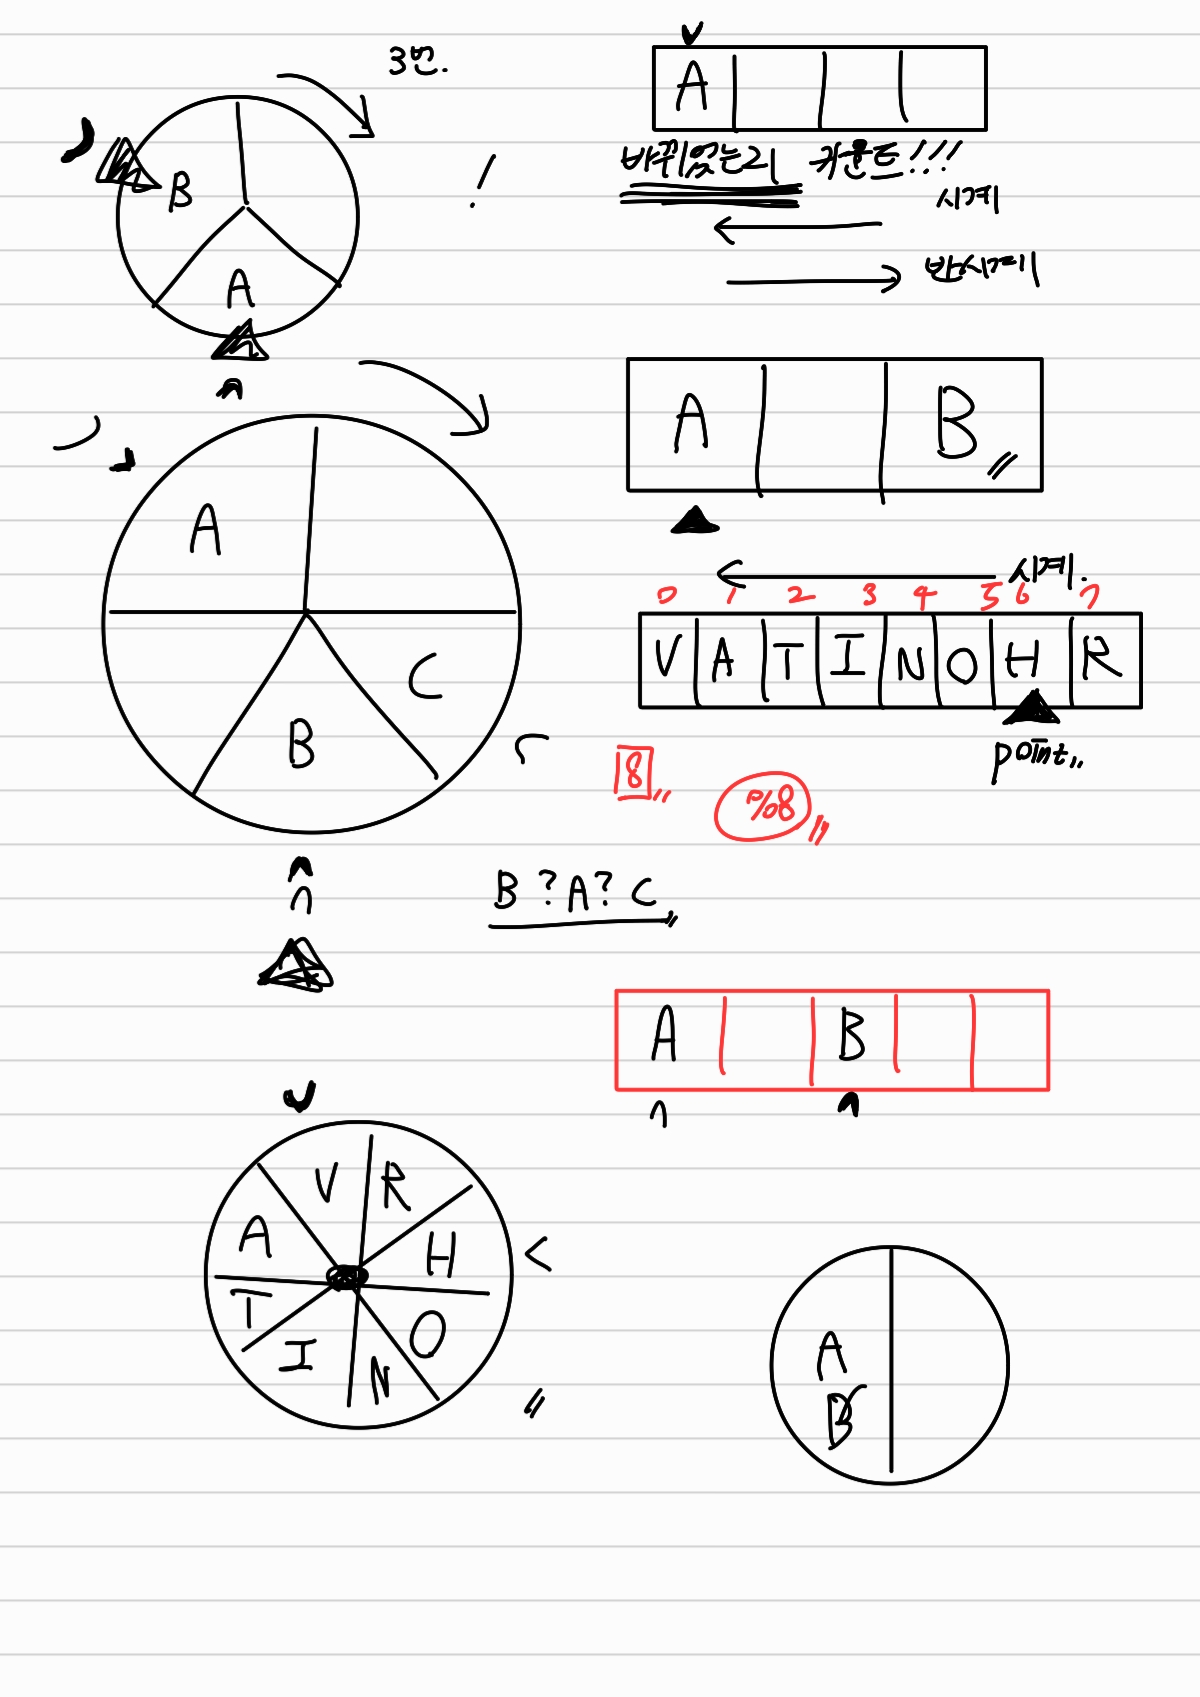 3번.
A
바퀴있는거 개운은!!!
B
!
시계
A
반시계
A B
A
시계.
0 1 2 3 4 5 6 7
V A T I N O H R
C
B
point
8
%8
B ? A ? C
A B
V R
A H
T O
I N
A
B